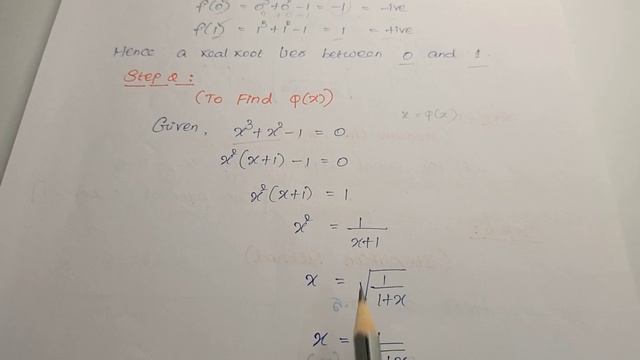 f(0) = 0³+0²-1 = -1 = -ive
f(1) = 1³+1²-1 = 1 = +ive
Hence a real root lies between 0 and 1.
Step 2 :
(To Find φ(x))
x = φ(x)
Given, x³+x²-1 = 0
x²(x+1) - 1 = 0
x²(x+1) = 1
x² = 1/(x+1)
x = √(1/(1+x))
x =